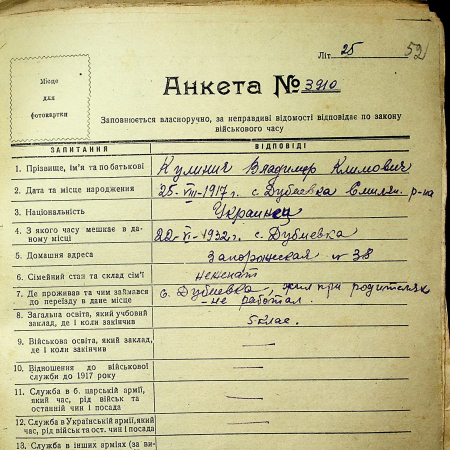 Літ. 25 52
Місце
для
фотокартки
Анкета № 3910
Заповнюється власноручно, за неправдиві відомості відповідає по закону
військового часу
ЗАПИТАННЯ ВІДПОВІДІ
1. Прізвище, ім'я та по батькові Кулинич Владимер Климович
2. Дата та місце народження 25-VIII-1917 г. с. Дубиевка Смилян. р-на
3. Національність Украинец
4. З якого часу мешкає в да-
ному місці 22-VI-1932 г. с. Дубиевка
5. Домашня адреса Запорожская № 38
6. Сімейний стан та склад сім'ї неженат
7. Де проживав та чим займався
до переїзду в дане місце с. Дубиевка, жил при родителях
- не работал.
8. Загальна освіта, який учбовий
заклад, де і коли закінчив 5 клас.
9. Військова освіта, який заклад,
де і коли закінчив
10. Відношення до військової
служби до 1917 року
11. Служба в б. царській армії,
який час, рід військ та
останній чин і посада
12. Служба в Українській армії, який
час, рід військ та ост. чин і посада
13. Служба в інших арміях (за ви-